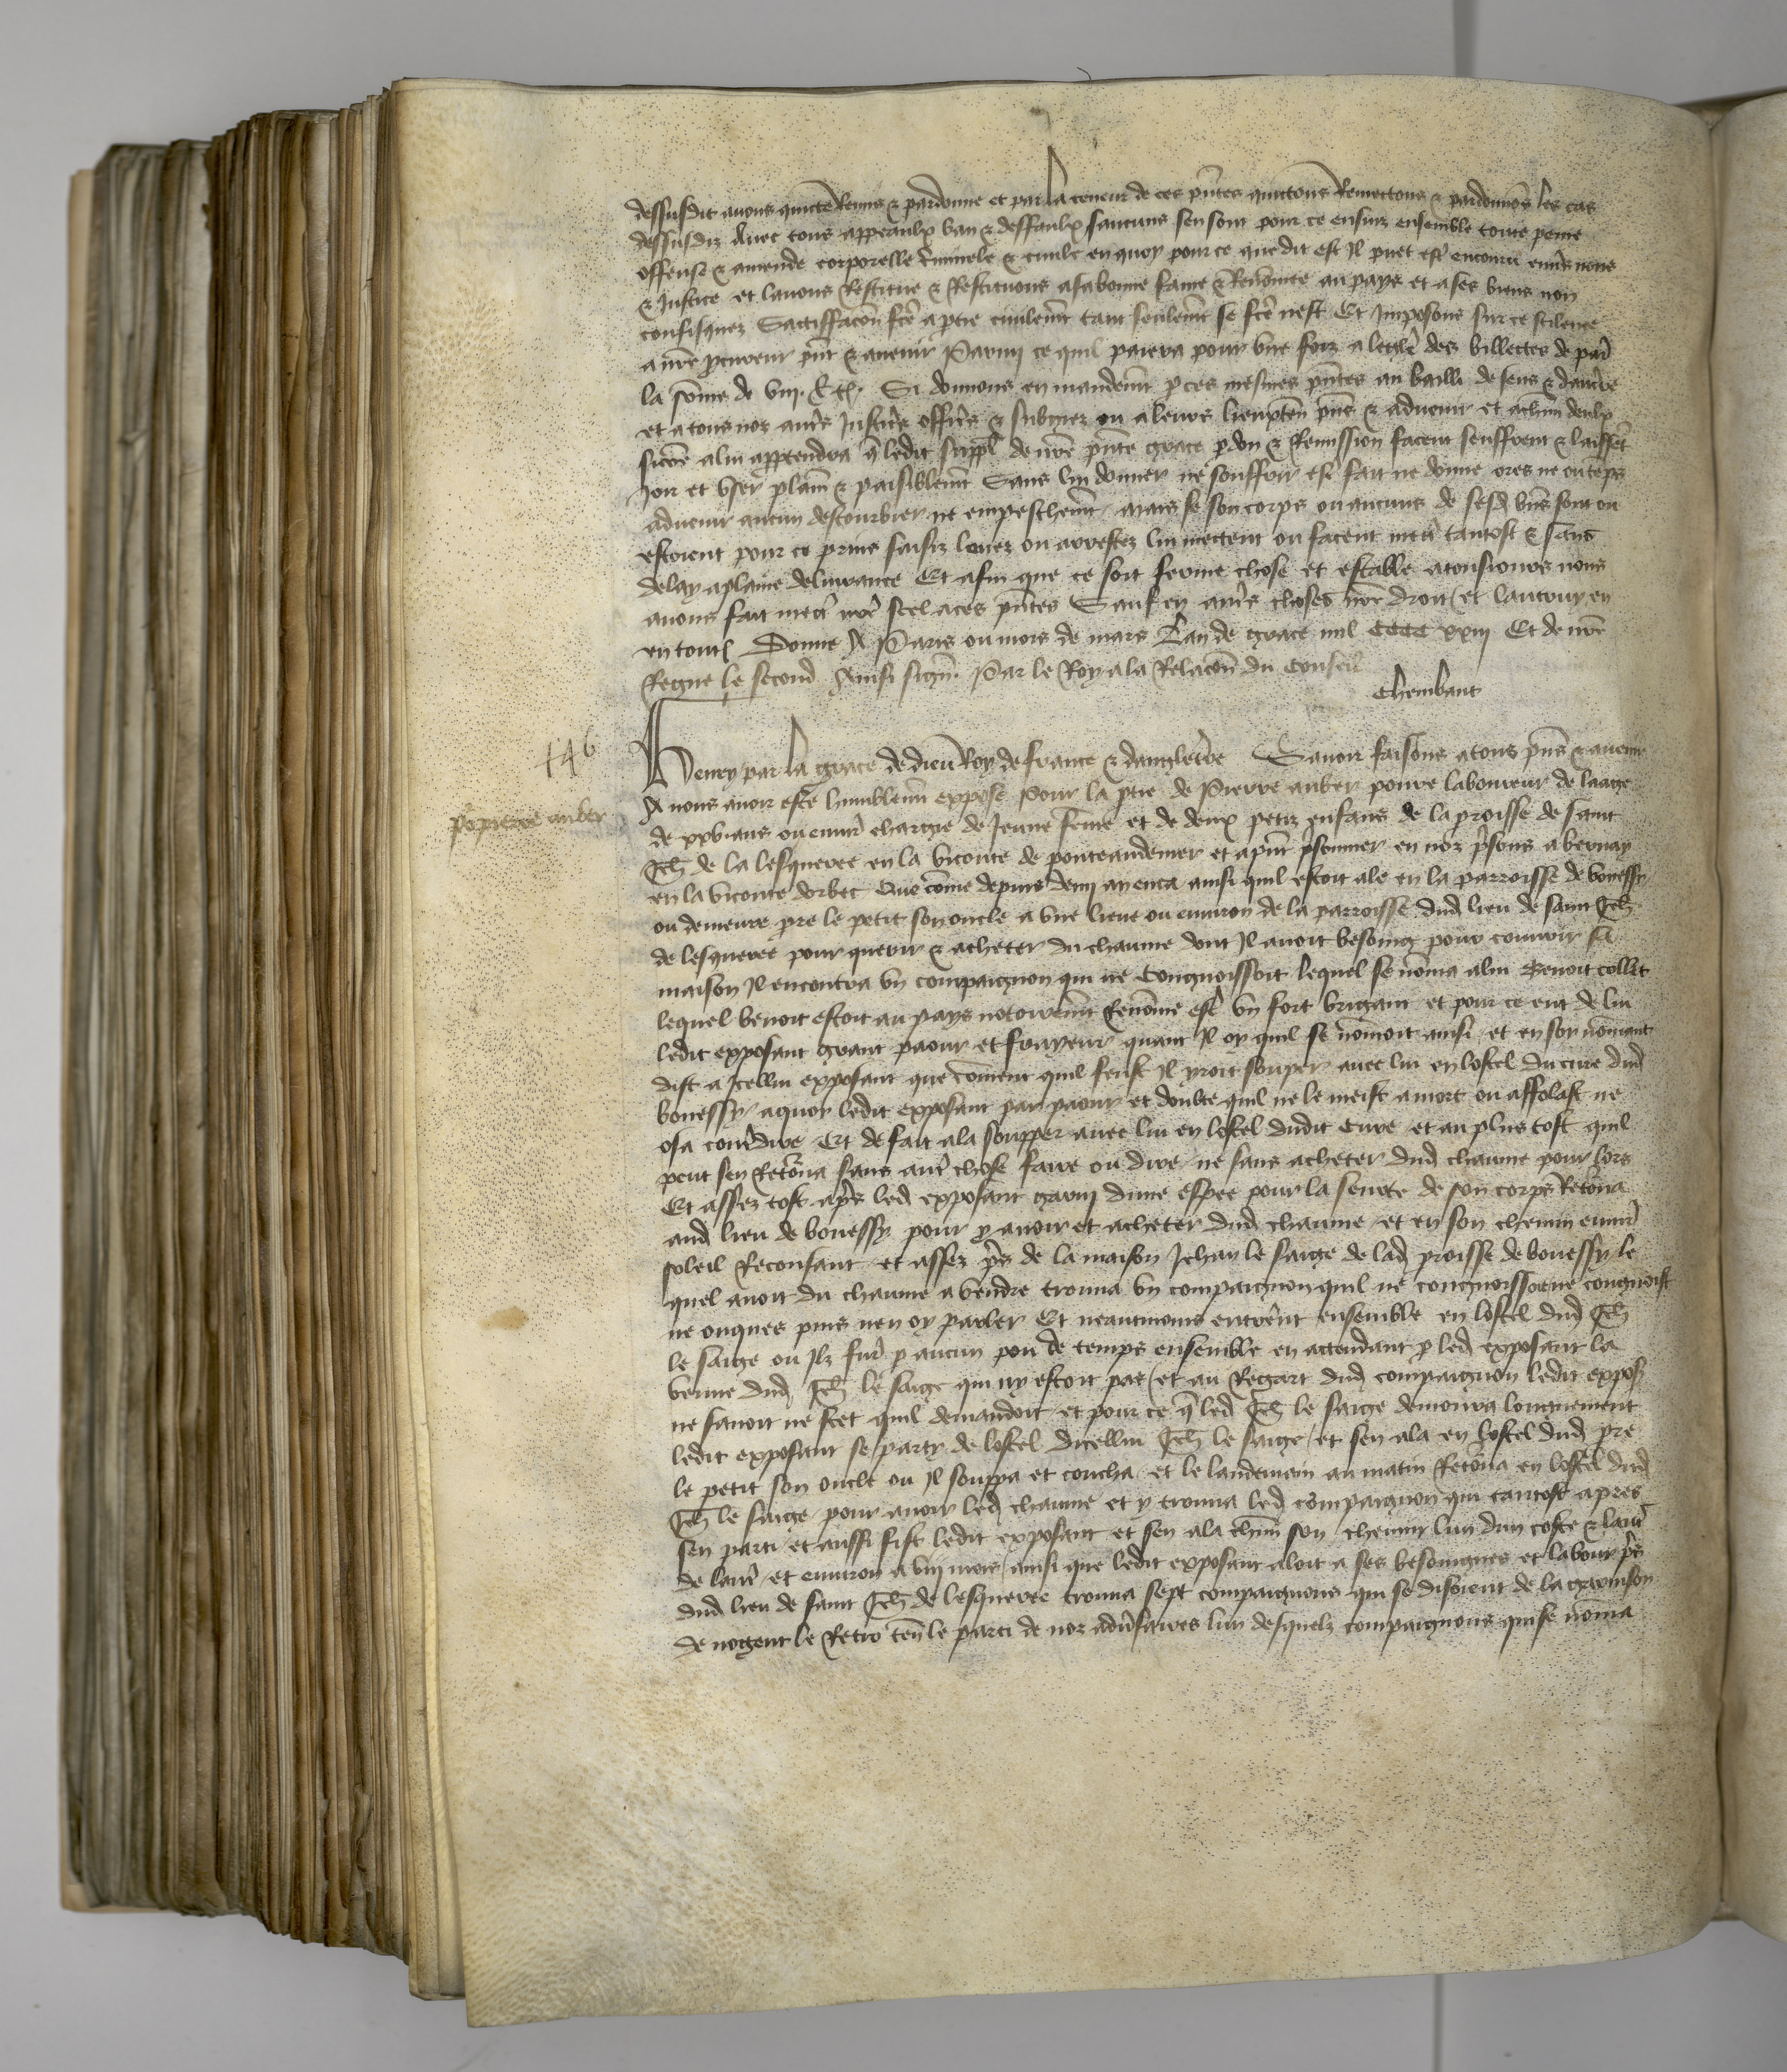 dessusdit avons quicte Remis & pardonne et par la teneur de ces pñtes quictons Remectons & pardonnõs les cas
dessusdiz Avec tous appeaulx ban & deffaulx saucuns sen sont pour ce ensuiz ensemble toute peine
offense & amende corporelle c͛minele & civile en quoy pour ce que dit est Il puet est͛ encouru env͛s nous
& Justice et lavons Restitue & Restituons a sa bonne fame & Renõmee au pays et a ses biens non
confisquez Satisffacoñ fc̃e a ptie civilem̃t tant seulem̃t se fc̃e nest Et Imposons sur ce scilence
a nr̃e ꝓcureur pñt & avenir Parmy ce quil paiera pour une foiz a leglĩe des billettes de par̃
la sõme de viij. £ t͛. Si donnons en mandem̃t ꝑ ces mesmes pñtes au bailli de sens & daucr̃e
et a tous noz autr̃s Justic͛s offic͛s & subgiez ou a leurs lieuxteñ pñs & advenir et a chũn deulx
sicõe a lui apptendra q̃ ledit suppl͛ de nr̃e pñte grace ꝑdon & Remission facent seuffrent & laissẽt
Joir et user plaiñ & paisiblem̃t Sans lui donner ne souffrir est͛ fait ne donne ores ne ou tẽps
advenir aucun destourbier ne empeschem̃t mais se son corps ou aucuns de sesd̃ biẽs sont ou
estoient pour ce prins saisiz levez ou arrestez lui mectent ou facent mect͛ tantost & sans
delay a plaine delivrance Et afin que ce soit ferme chose et estable a tousiours nous
avons fait mect͛ nr̃e seel a ces pñtes Sauf en autr̃s choses nr̃e droit et lautruy en
en tout͛ Donne A Paris ou mois de mars Lan de grace mil CCCC xxiij Et de nr̃e
Regne le second Ainsi sign̄. Par le Roy a la Relacoñ du conseil
Chembaut
146
Henry par la grace de dieu Roy de france & dangleterre Savoir faisons a tous pñs & avenir
po͛ pierre auber
A nous avoir este humblem̃t expose Pour la ptie de Pierre auber povre laboureur de laage
de xxv ans ou envir̃ charge de Jeune fẽme et de deux petiz enfans de la proisse de saint
Jeh̃ de la lesqueree en la viconte de ponteaudemer et a pñt p͛sonnier en noz p͛sons a bernay
en la viconte dorbec Que cõme depuis demy an enca ainsi quil estoit ale en la parroisse de bouessy
ou demeure p̃re le petit son oncle a une lieue ou environ de la parroisse dud̃ lieu de saint Jeh̃
de lesqueree pour querir & acheter du chaume dont Il avoit besoing pour couvrir sa
maison Il encontra un compaignon qui ne Congnoissoit lequel se nõma a lui Benoit collet
lequel benoit estoit au pays notoirem̃t Renõme est͛ un fort brigant et pour ce eut de lui
ledit exposant grant paour et frayeur quant Il oy quil se nõmoit ainsi et en soy nõmant
dist a Icellui exposant que cõment quil feust Il yroit souper avec lui en lostel du cure dud̃
bouessy a quoy ledit exposant par paour et doubte quil ne le meist a mort ou affolast ne
osa contr̃dire Et de fait ala soupper avec lui en lostel dudit Cure et au plus tost quil
peut sen Retõna sans aut͛ chose faire ou dire ne sans acheter dud̃ chaume pour lors
Et assez tost ap͛s led̃ exposant garny dune espee pour la seurte de son corps Retõna
aud̃ lieu de bouessy pour y avoir et acheter dud̃ chaume et en son chemin envir̃
soleil Reconsant et assez p͛s de la maison Jehan le saige de lad̃ proisse de bouessy le
quel avoit du chaume a vendre trouva un compaignon quil ne congnoissoit ne congnoist
ne onques puis nen oy parler Et neantmoins entrẽnt ensemble en lostel dud̃ Jeh̃
le saige ou Ilz furẽ p aucun pou de temps ensemble en actendant p led̃ exposant la
venue dud̃ Jeh̃ le saige qui ny estoit pas et au Regart dud̃ compaignon ledit expos͛
ne savoit ne scet quil demandoit et pour ce q̃ led̃ Jeh̃ le saige demoura longuement
ledit exposant se party de lostel dicellui Jeh̃ le saige et sen ala en lostel dud̃ p̃re
le petit son oncle ou Il souppa et coucha et le landemein au matin Retõna en lostel dud̃
Jeh̃ le saige pour avoir led̃ chaume et y trouva led̃ compaignon qui tantost apres
sen parti et aussi fist ledit exposant et sen ala chũn son chemin lun dun coste & laut͛
de laut͛ et environ a vij mois ainsi que ledit exposant aloit a ses besoingnes et labour p͛s
dud̃ lieu de saint Jeh̃ de lesqueree trouva sept compaignons qui se disoient de la garnison
de nogent le Retro teñ le parti de noz adv͛saires lun desquelz compaignons qui se nõma